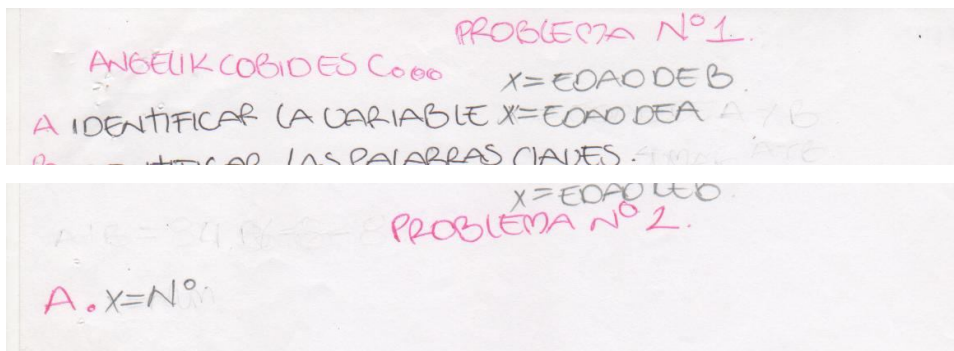 PROBLEMA Nº1.
ANGELIK COBIDES
X=EDAD DE B
A IDENTIFICAR LA VARIABLE X=EDAD DE A
LAS PALABRAS CLAVES.
X=EDAD DE B
PROBLEMA Nº 2.
A. X=Nº